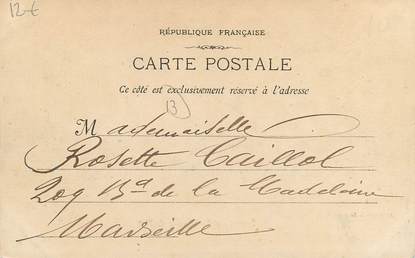 12-€
RÉPUBLIQUE FRANÇAISE
CARTE POSTALE
Ce côté est exclusivement réservé à l'adresse
13
Mademoiselle
Rosette Caillol
209 Bd de la Madeleine
Marseille